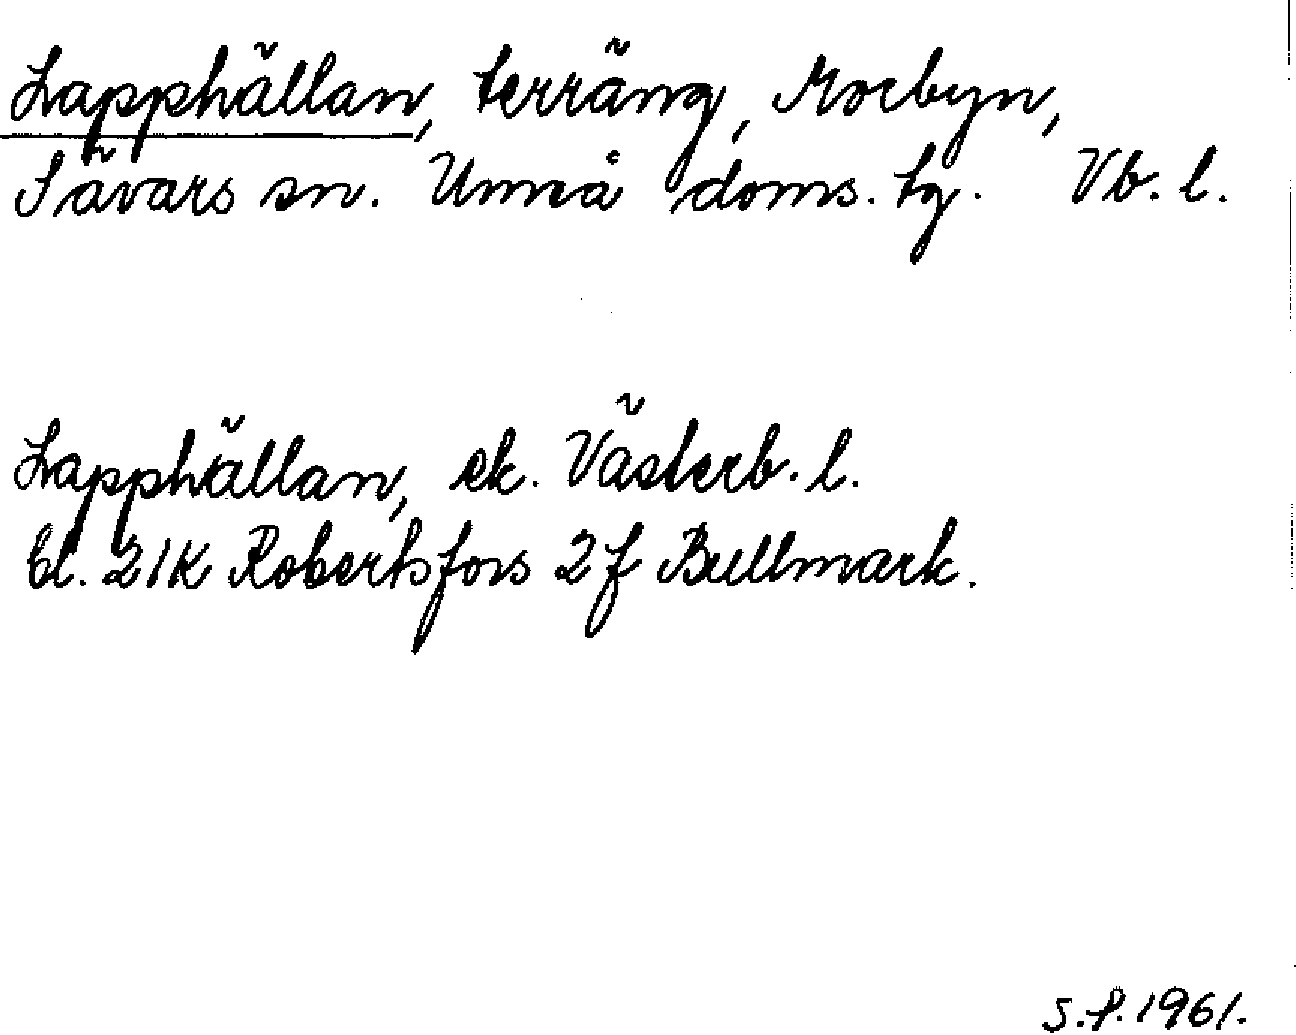 Lapphällan, terräng, Morbyn,
Sävars sn. Umeå doms. tg. Vb. l.
Lapphällan, ek. Västerb. l.
bl. 21K Robertsfors 2f Bullmark.
S.P. 1961.